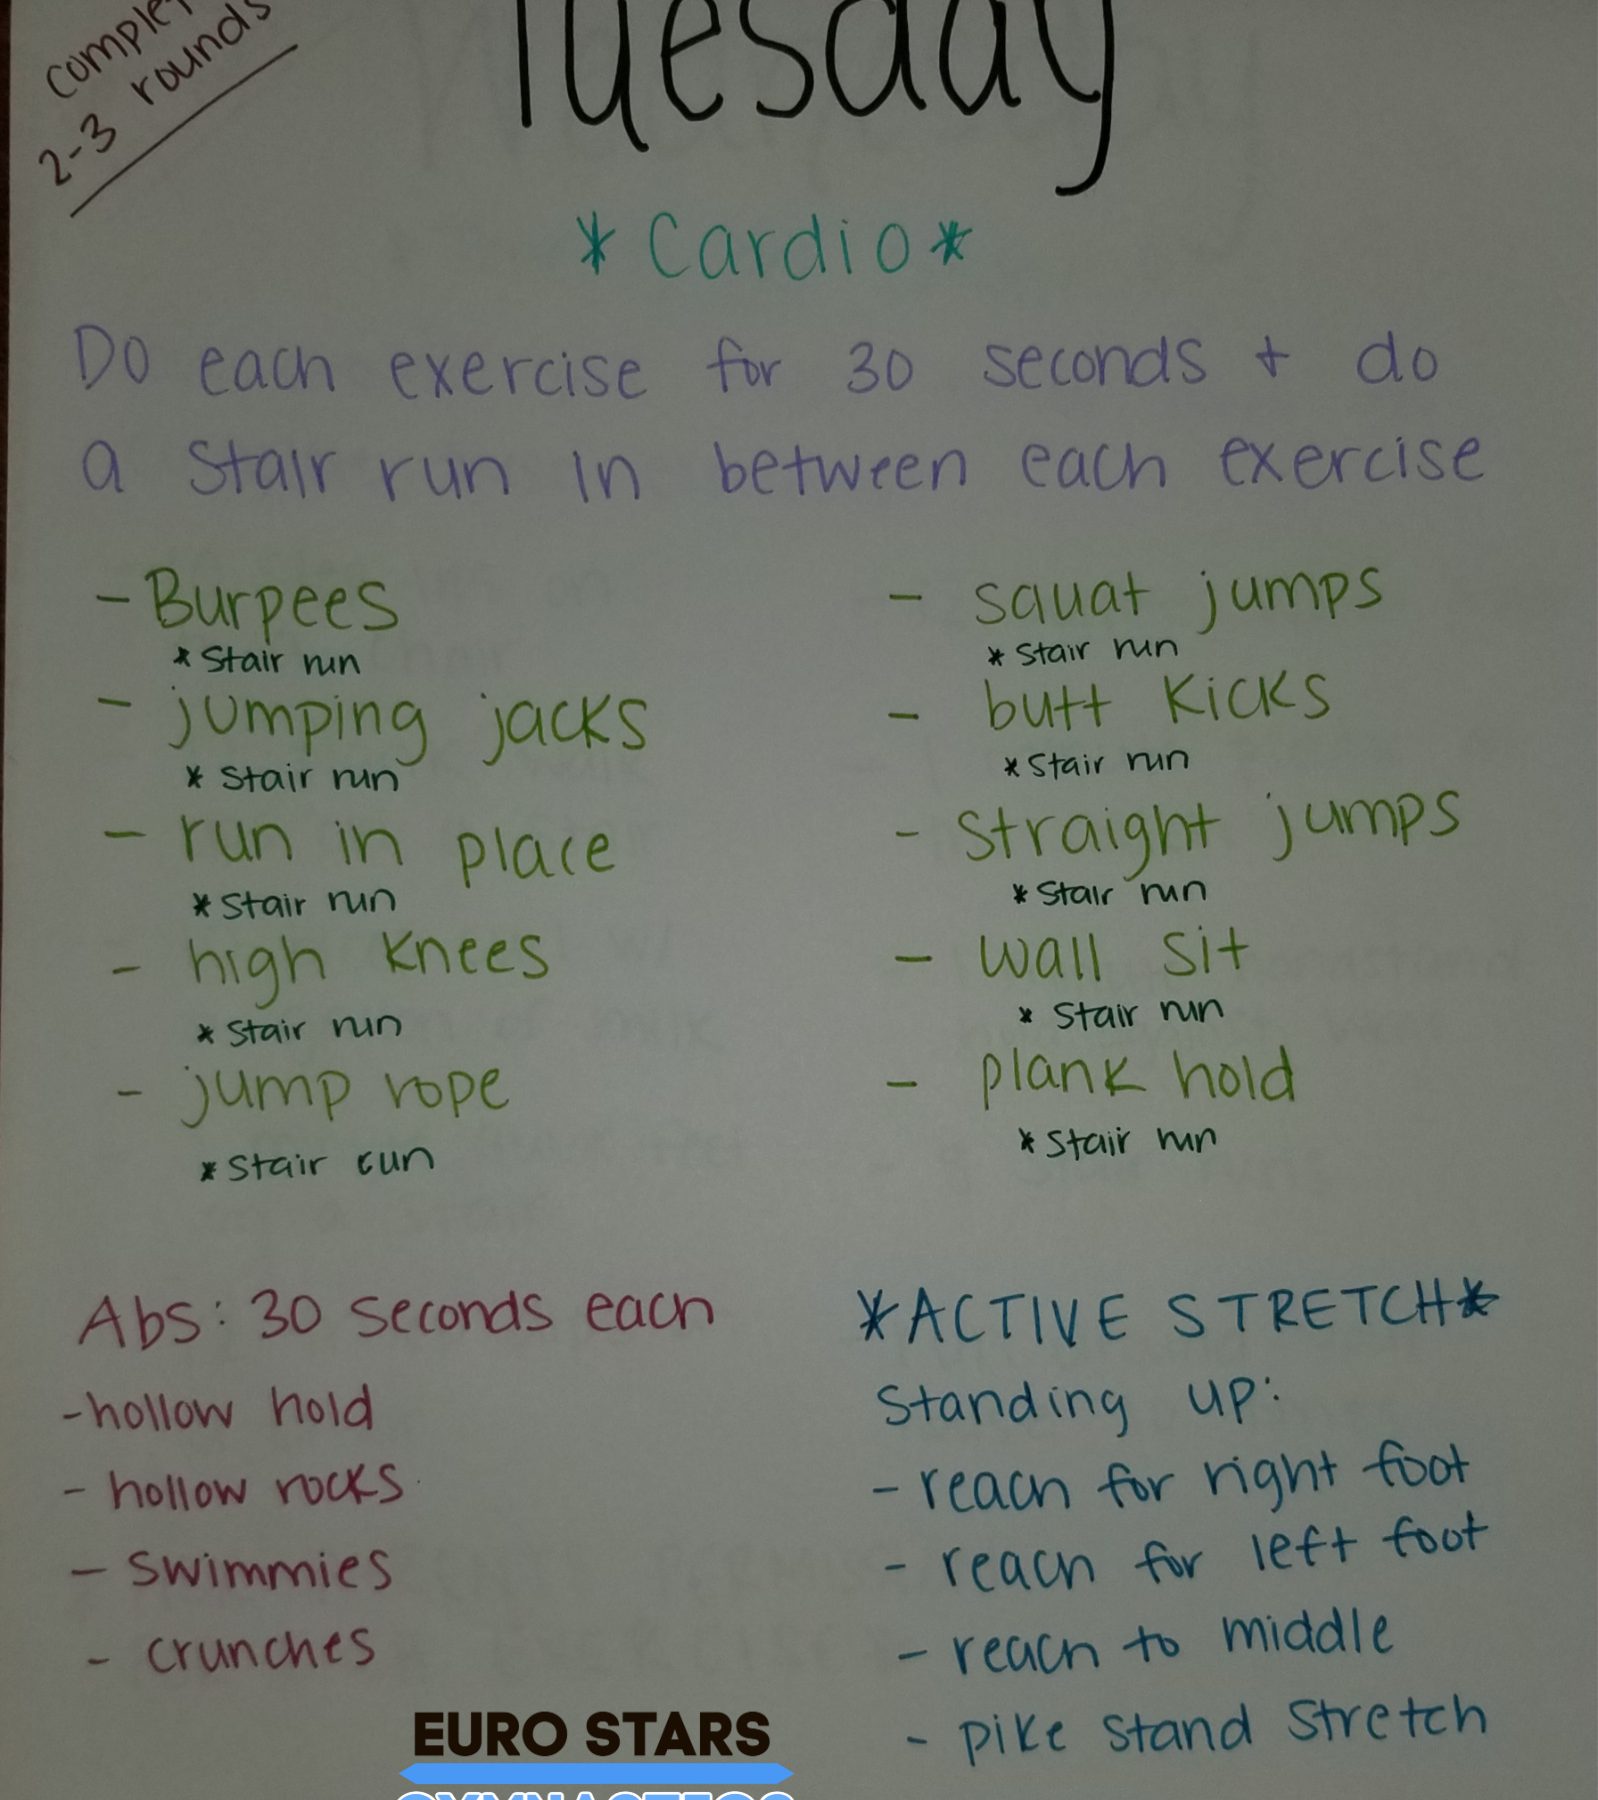 complet
2-3 rounds
Tuesday
*Cardio*
Do each exercise for 30 seconds + do
a stair run in between each exercise
- Burpees
* Stair run
- jumping jacks
* Stair run
- run in place
* Stair run
- high knees
* Stair run
- jump rope
* Stair run
- squat jumps
* Stair run
- butt kicks
* Stair run
- straight jumps
* Stair run
- wall sit
* Stair run
- plank hold
* Stair run
Abs: 30 seconds each
- hollow hold
- hollow rocks
- swimmies
- crunches
*ACTIVE STRETCH*
Standing up:
- reach for right foot
- reach for left foot
- reach to middle
- pike stand stretch
EURO STARS
GYMNASTICS